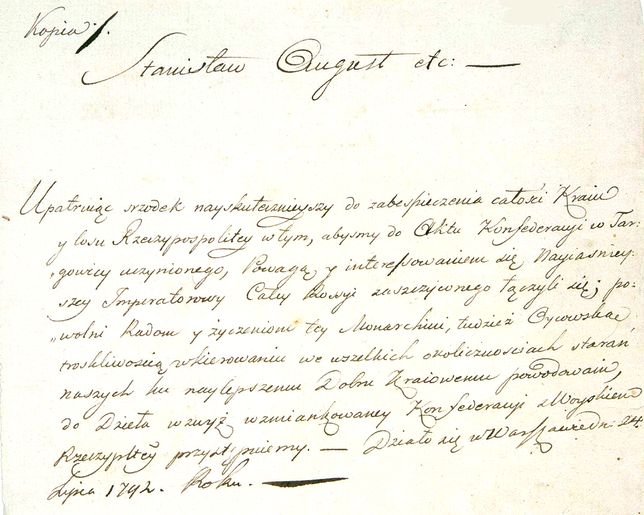 Kopia /.
Stanisław August etc: —
Upatruiąc srzodek nayskutecznieyszy do zabespieczenia całości Kraiu
y losu Rzeczypospolitey w tym, abyśmy do Aktu Konfederacyi w Tar-
„gowicy uczynionego, Powagą y interessowaniem się Nayiaśniey-
szey Imperatorowy Całey Rossyi zaszczyconego łączyli się; po-
„wolni Radom y życzeniom tey Monarchini, tudzież Oycowską
troskliwością w kierowaniu we wszelkich okolicznościach staran
naszych ku naylepszemu Dobru Kraiowemu powodowani,
do Dzieła wzwyż wzmiankowaney Konfederacyi z Woyskiem
Rzeczypltey przystępuiemy. — Działo się w Warszawie dn: 24.
Lipca 1792. Roku. —